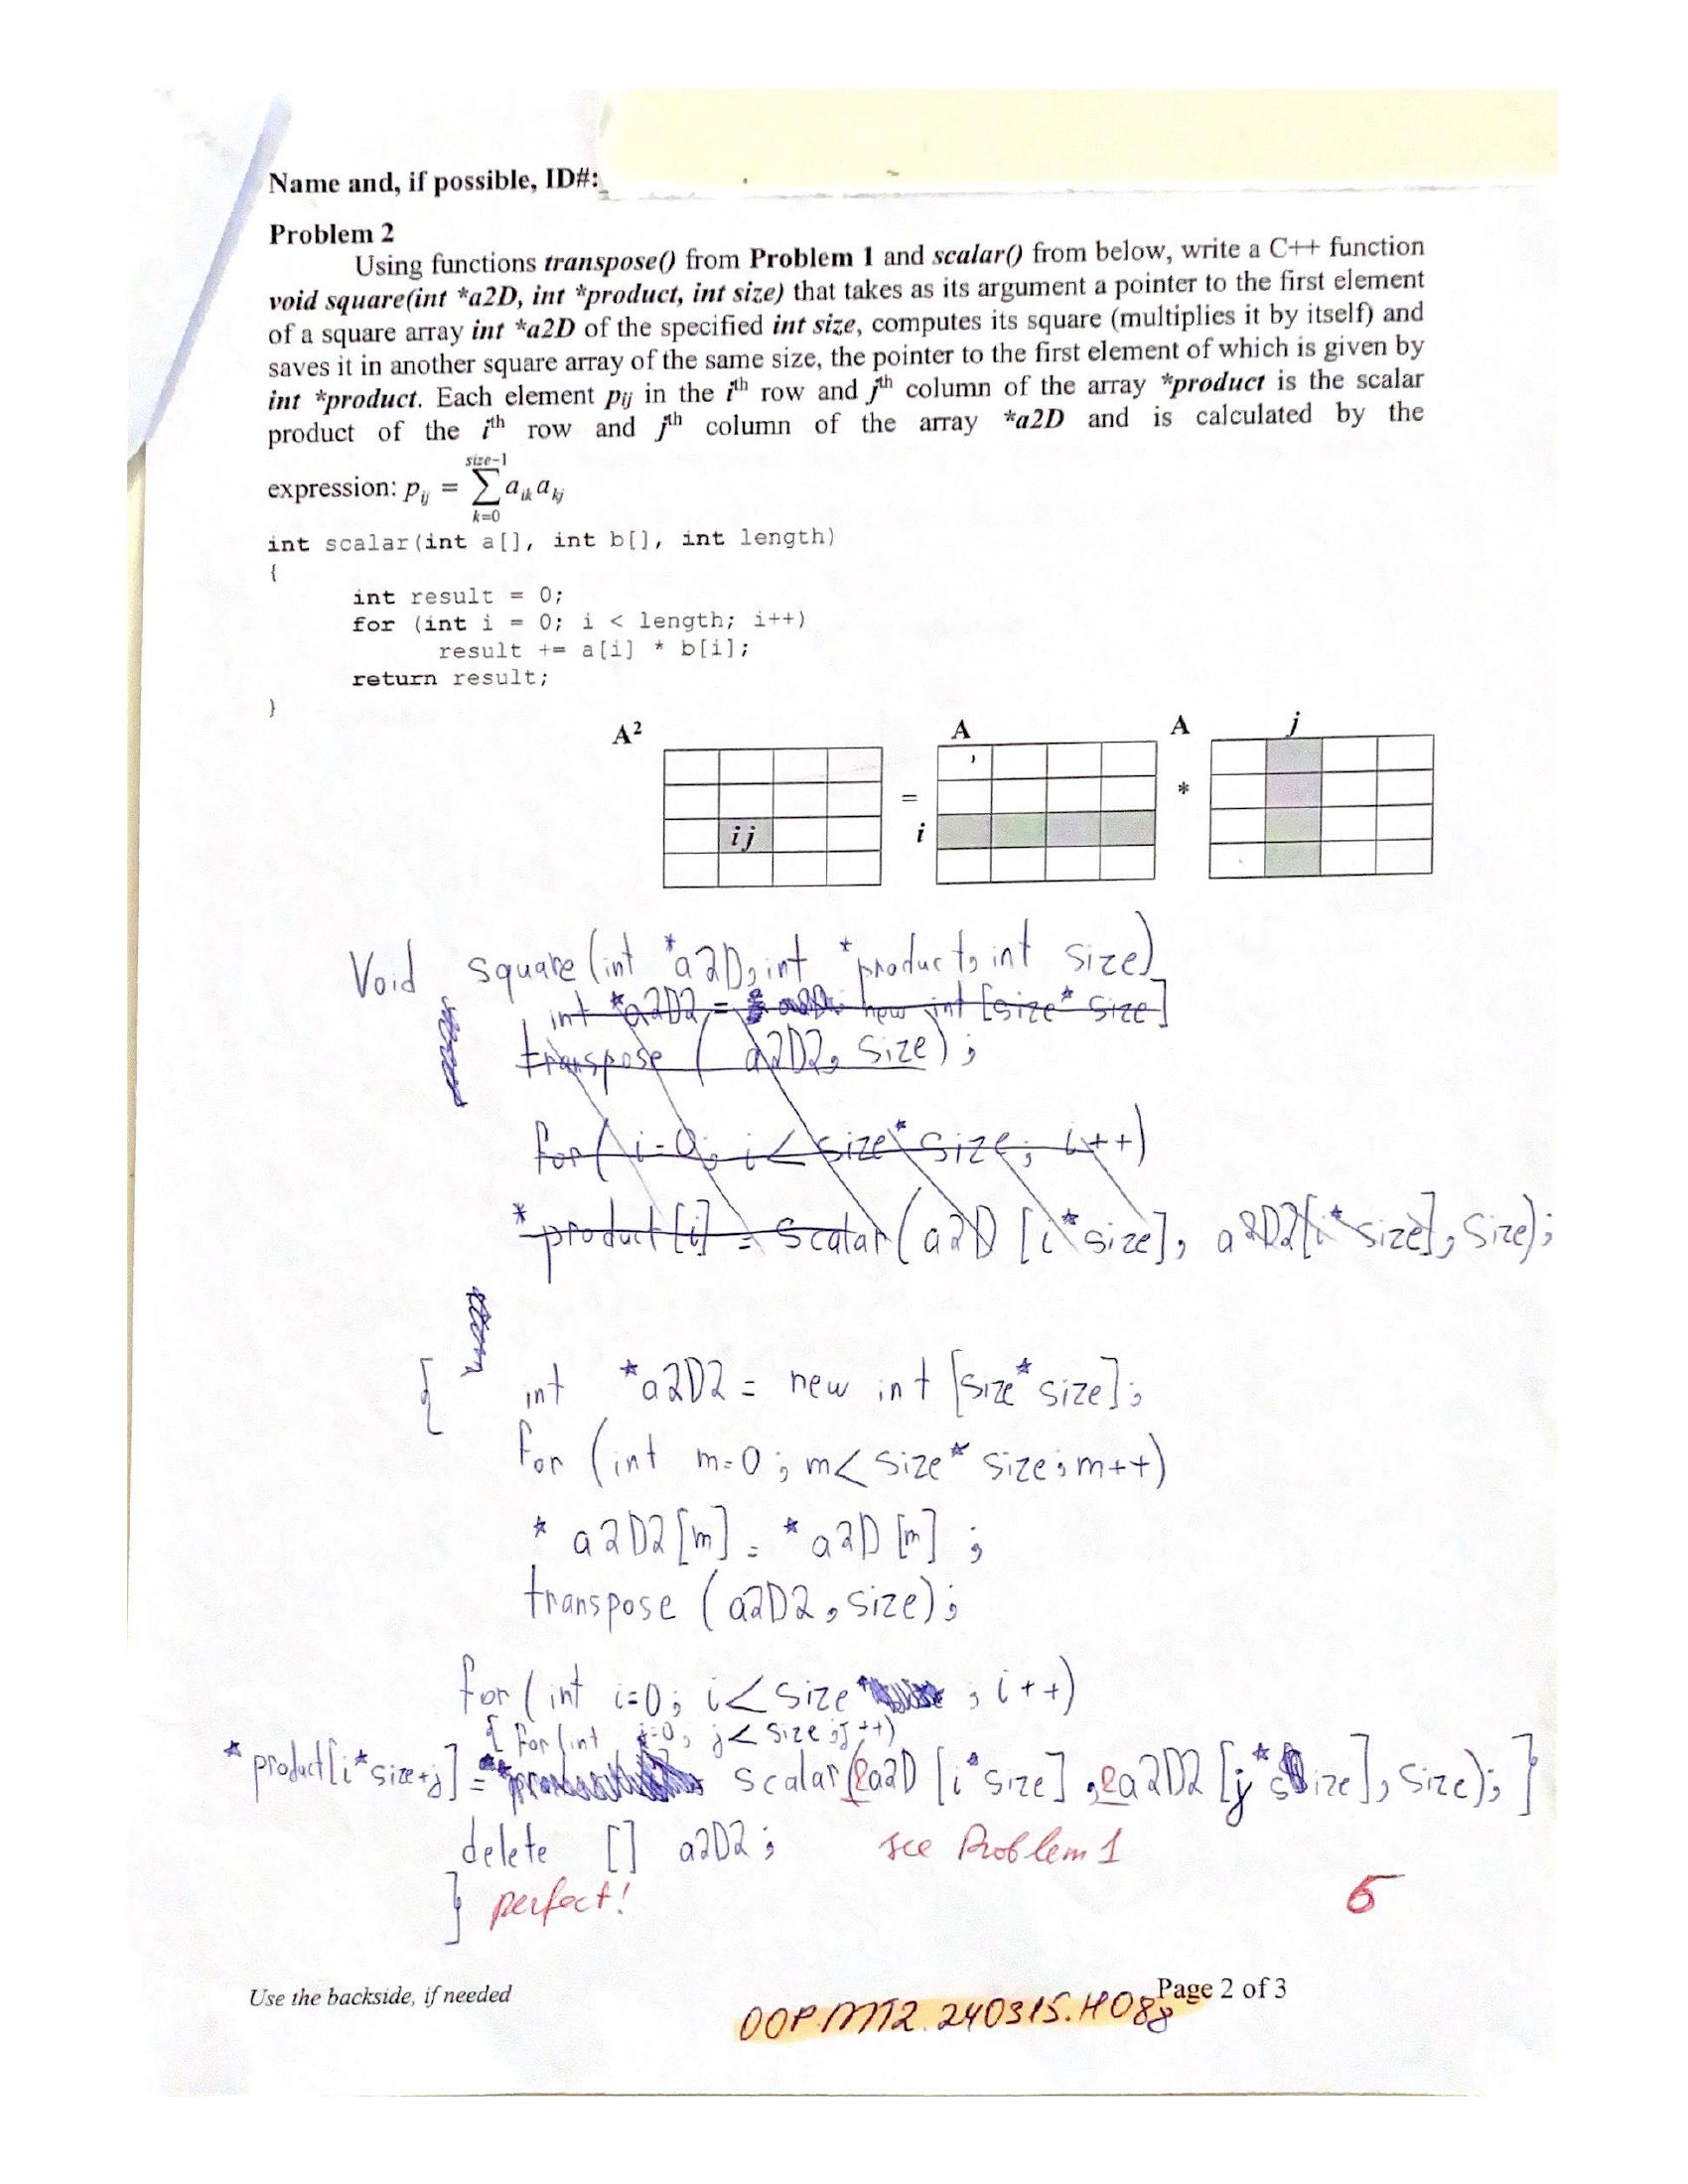 Name and, if possible, ID#:
Problem 2
Using functions transpose() from Problem 1 and scalar() from below, write a C++ function
void square(int *a2D, int *product, int size) that takes as its argument a pointer to the first element
of a square array int *a2D of the specified int size, computes its square (multiplies it by itself) and
saves it in another square array of the same size, the pointer to the first element of which is given by
int *product. Each element pij in the ith row and jth column of the array *product is the scalar
product of the ith row and jth column of the array *a2D and is calculated by the
size-1
expression: pij = ∑ aik akj
k=0
int scalar(int a[], int b[], int length)
{
int result = 0;
for (int i = 0; i < length; i++)
result += a[i] * b[i];
return result;
}
A² A A j
= *
ij i
Void square(int *a2D, int *product, int size)
int *a2D2 = new int [size* size]
transpose ( a2D2, size);
for( i=0; i< size* size; i++)
*product[i] = scalar(a2D [i*size], a2D2[i* size], size);
{ int *a2D2 = new int [size* size];
for (int m=0; m< size* size; m++)
* a2D2[m] = *a2D [m] ;
transpose (a2D2, size);
for( int i=0; i< size ; i++)
{ for(int j=0; j< size; j++)
*product[i*size+j] = scalar(&a2D [i*size], &a2D2 [j*size], size); }
delete [] a2D2;
see Problem 1
} perfect!
5
Use the backside, if needed
Page 2 of 3
OOP.MT2.240315.H088